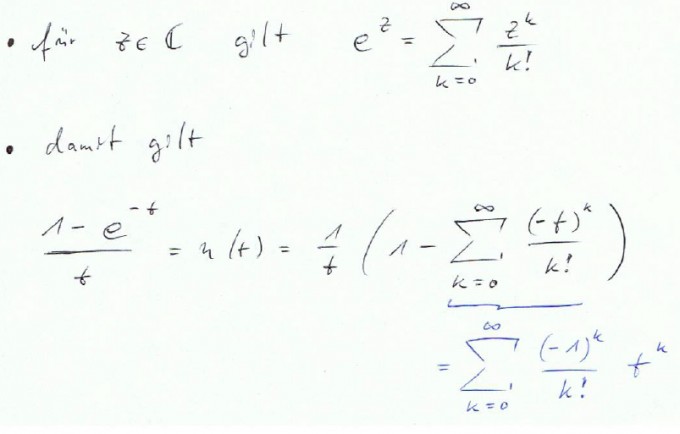 • für z ∈ ℂ gilt e^z = ∑_{k=0}^{∞} z^k / k!
• damit gilt
(1 - e^{-t}) / t = u(t) = 1/t ( 1 - ∑_{k=0}^{∞} (-t)^k / k! )
= ∑_{k=0}^{∞} (-1)^k / k! t^k